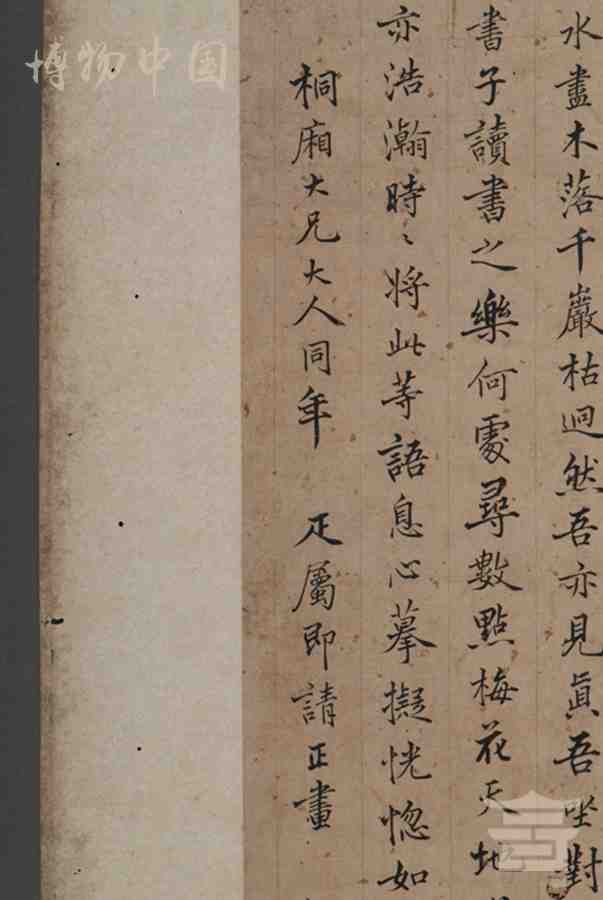 水盡木落千巖枯迥然吾亦見真吾坐對
書子讀書之樂何處尋數點梅花天地
亦浩瀚時〻將此等語息心摹擬恍惚如
桐廂大兄大人同年 疋屬即請正畫
博物中国